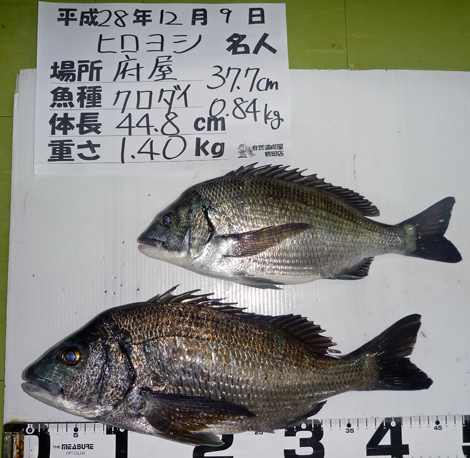 平成28年12月9日
ヒロヨシ 名人
場所 府屋 37.7cm
魚種 クロダイ 0.84kg
体長 44.8cm
重さ 1.40kg
THE MEASURE
0 5 1 2 3 4 5